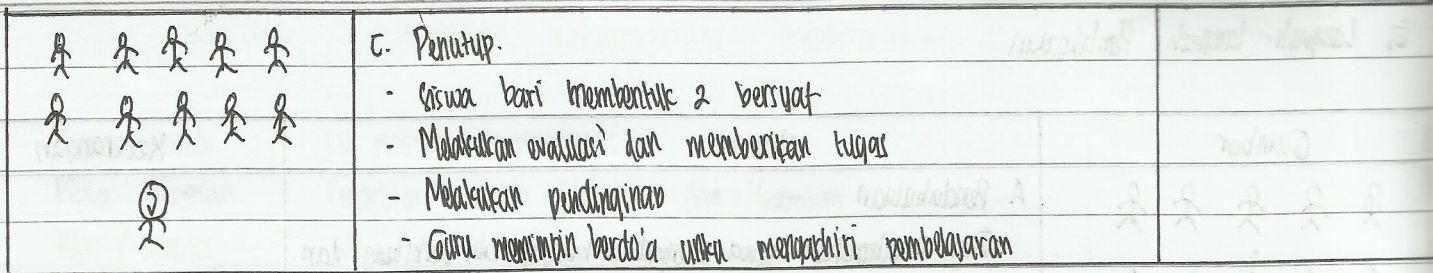 C. Penutup.
- Siswa bari membentuk 2 bersyaf
- Melakukan evaluasi dan memberikan tugas
- Melakukan pendinginan
- Guru memimpin berdo'a untu mengakhiri pembelajaran